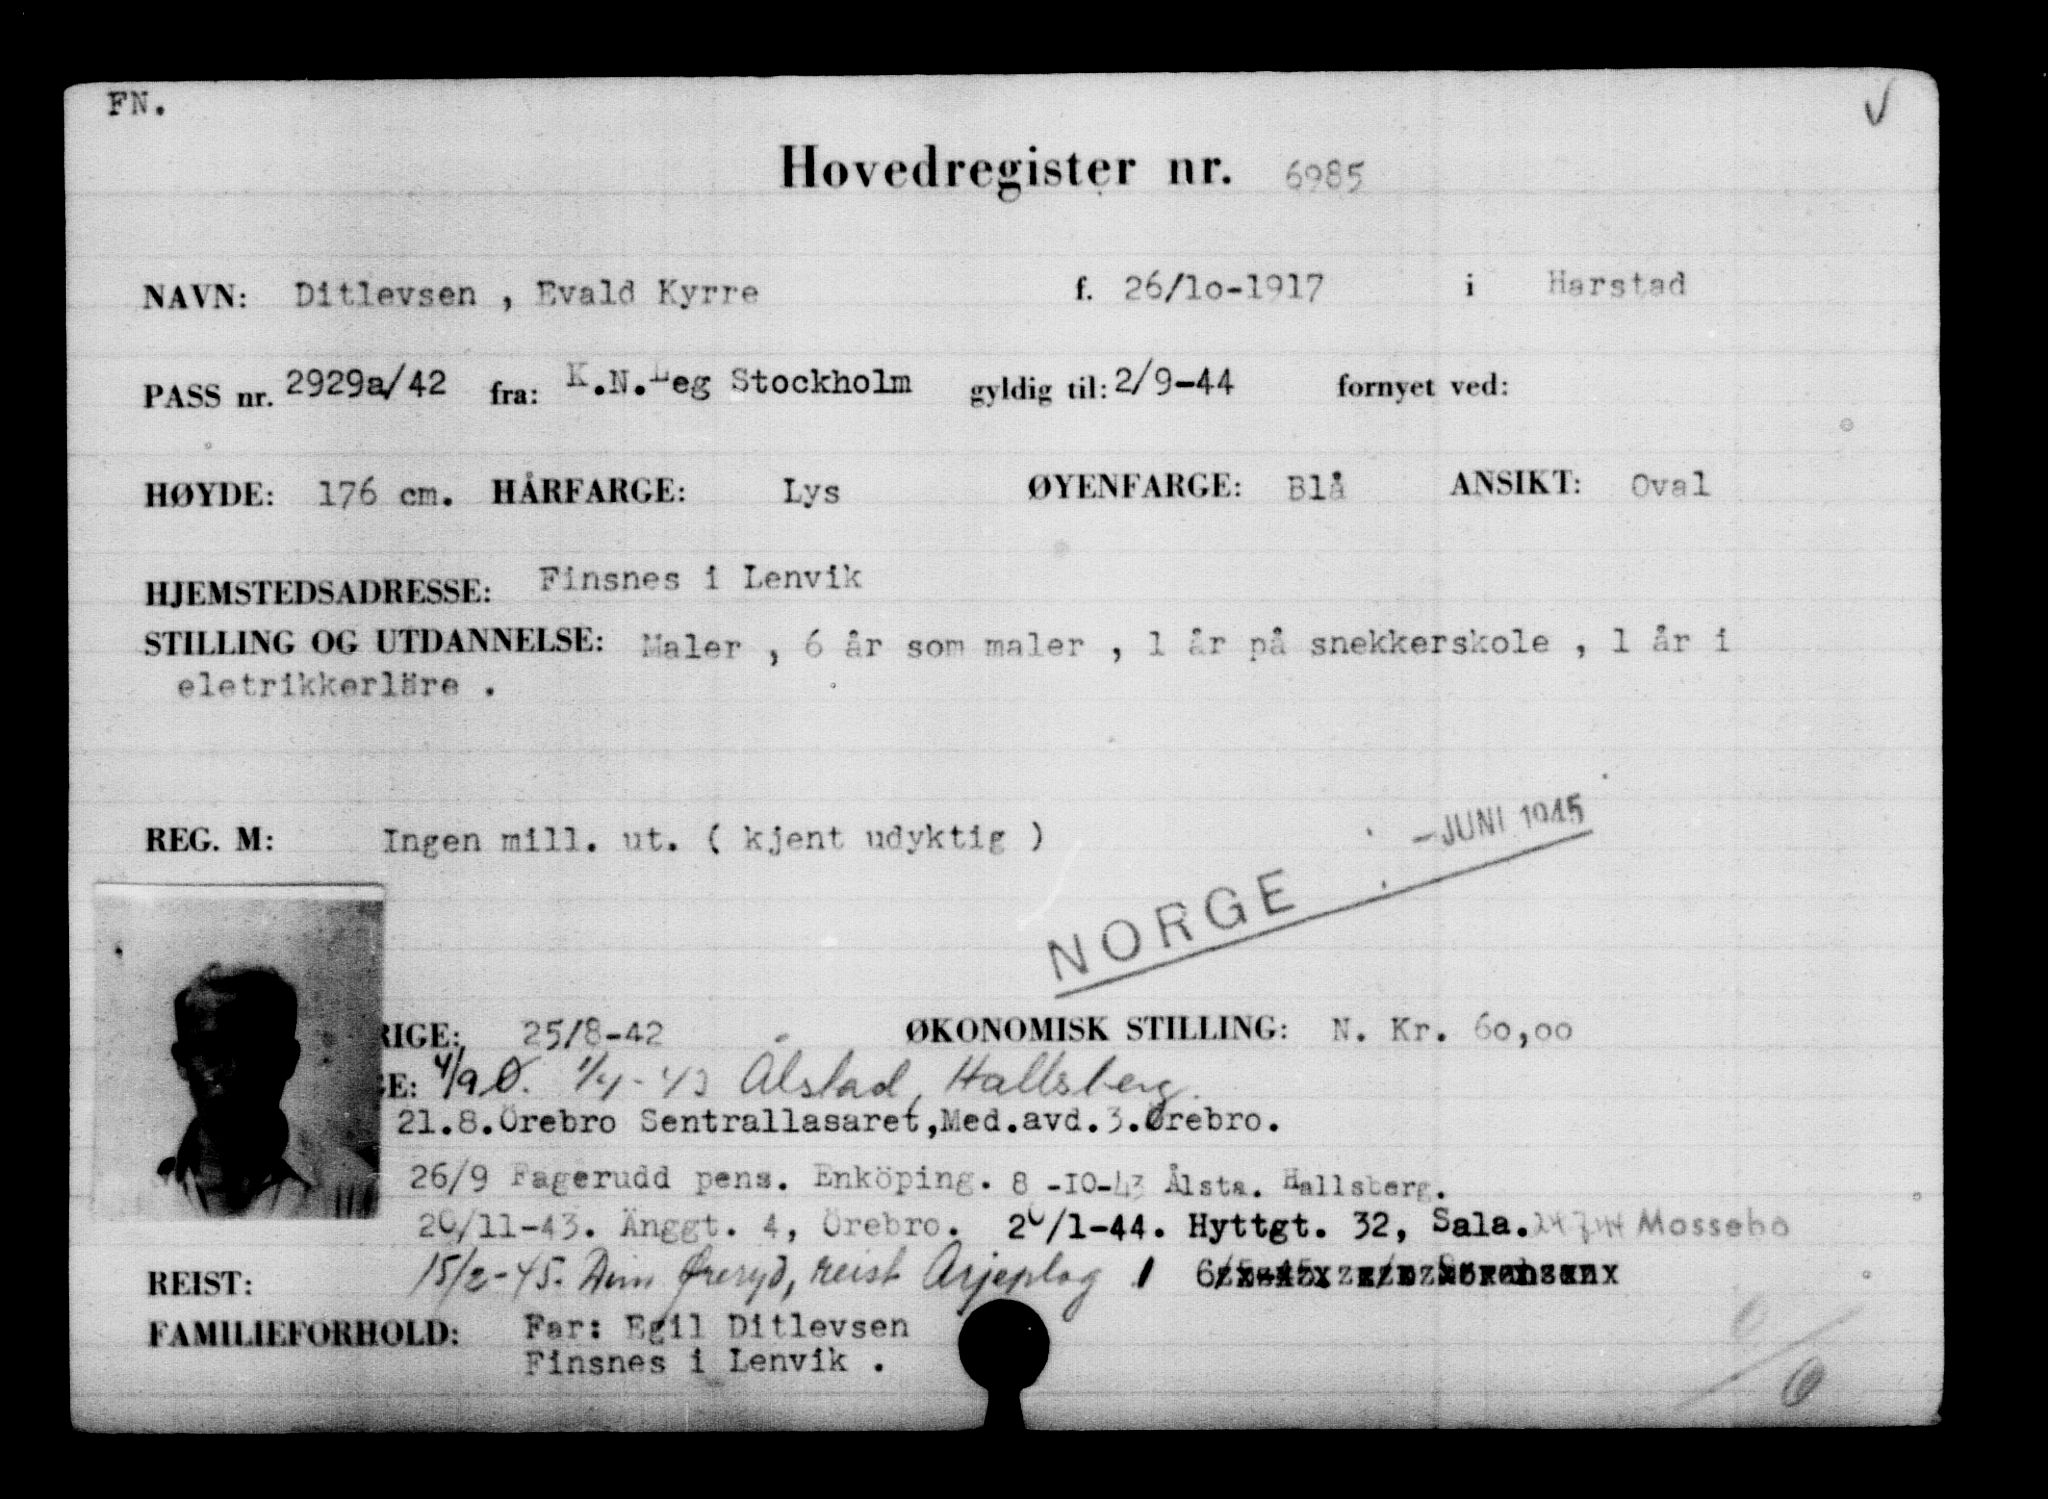 FN.
Hovedregister nr. 6985
NAVN: Ditlevsen , Evald Kyrre f. 26/lo-1917 i Harstad
PASS nr. 2929a/42 fra: K.N.Leg Stockholm gyldig til: 2/9-44 fornyet ved:
HØYDE: 176 cm. HÅRFARGE: Lys ØYENFARGE: Blå ANSIKT: Oval
HJEMSTEDSADRESSE: Finsnes i Lenvik
STILLING OG UTDANNELSE: Maler , 6 år som maler , 1 år på snekkerskole , 1 år i
eletrikkerläre .
REG. M: Ingen mill. ut. ( kjent udyktig )
NORGE - JUNI 1945
RIGE: 25/8-42 ØKONOMISK STILLING: N. Kr. 60,00
GE: 4/9 Ö. 1/4-43 Ålstad, Hallsberg.
21.8.Örebro Sentrallasaret,Med.avd.3.Örebro.
26/9 Fagerudd pens. Enköping. 8 -10-43 Ålsta. Hallsberg.
20/11-43. Änggt. 4, Örebro. 20/1-44. Hyttgt. 32, Sala. Mossebo
REIST: 15/2-45. Dim Øreryd, reist Arjeplog
FAMILIEFORHOLD: Far: Egil Ditlevsen
Finsnes i Lenvik .